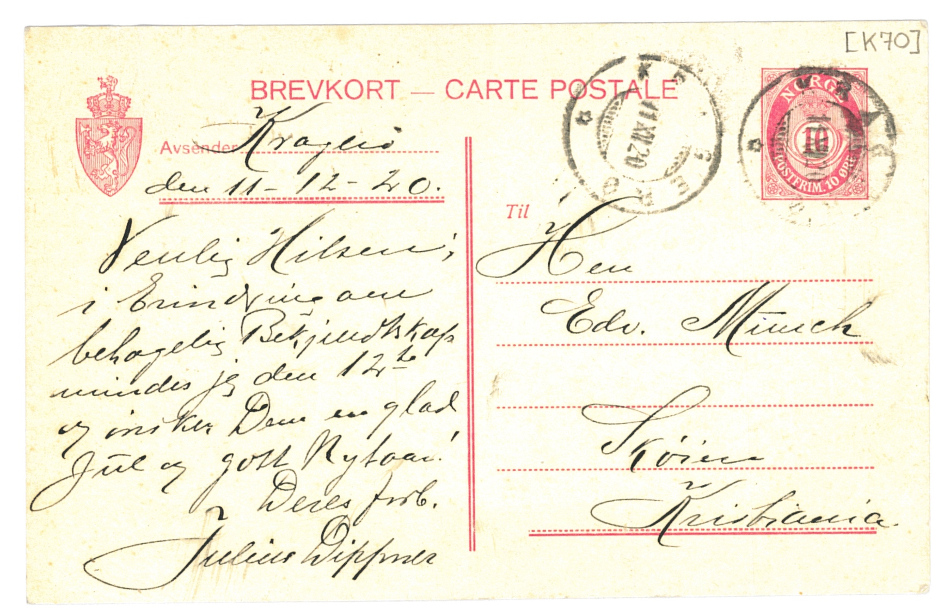 [K70]
BREVKORT — CARTE POSTALE
NORGE
10
POSTFRIM. 10 ØRE
11 XII 20
Avsender
Kragerø
den 11-12-20.
Venlig Hilsen;
i Erindring om
behagelig Bekjendtskap
mindes jeg den 12te
og ønsker Dem en glad
Jul og gott Nytaar!
Deres forb.
Julius Dippner
Til
Herr
Edv. Münch
Skøien
Kristiania.